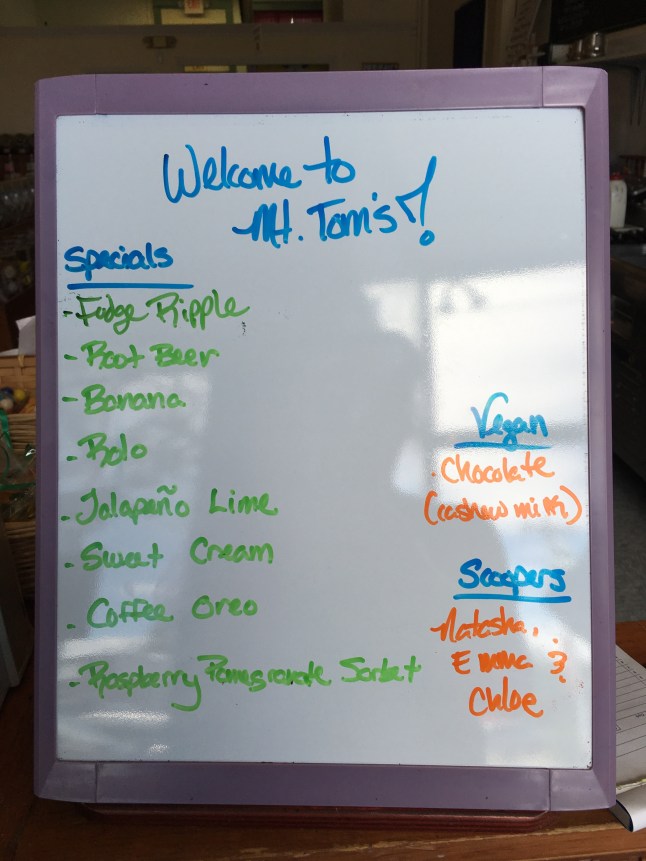 Welcome to
Mt. Tom's!
Specials
- Fudge Ripple
- Root Beer
- Banana
- Rolo
- Jalapeño Lime
- Sweet Cream
- Coffee Oreo
- Raspberry Pomegranate Sorbet
Vegan
· Chocolate
(cashew milk)
Scoopers
Natasha,
Emma &
Chloe